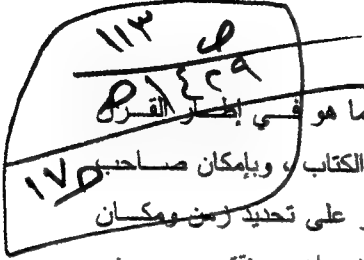 ١١٣ ص
١٤٢٩ ص
ما هو في إطار القرن
الكتاب ، وبإمكان صاحب
١٧ ص
على تحديد زمن ومكان